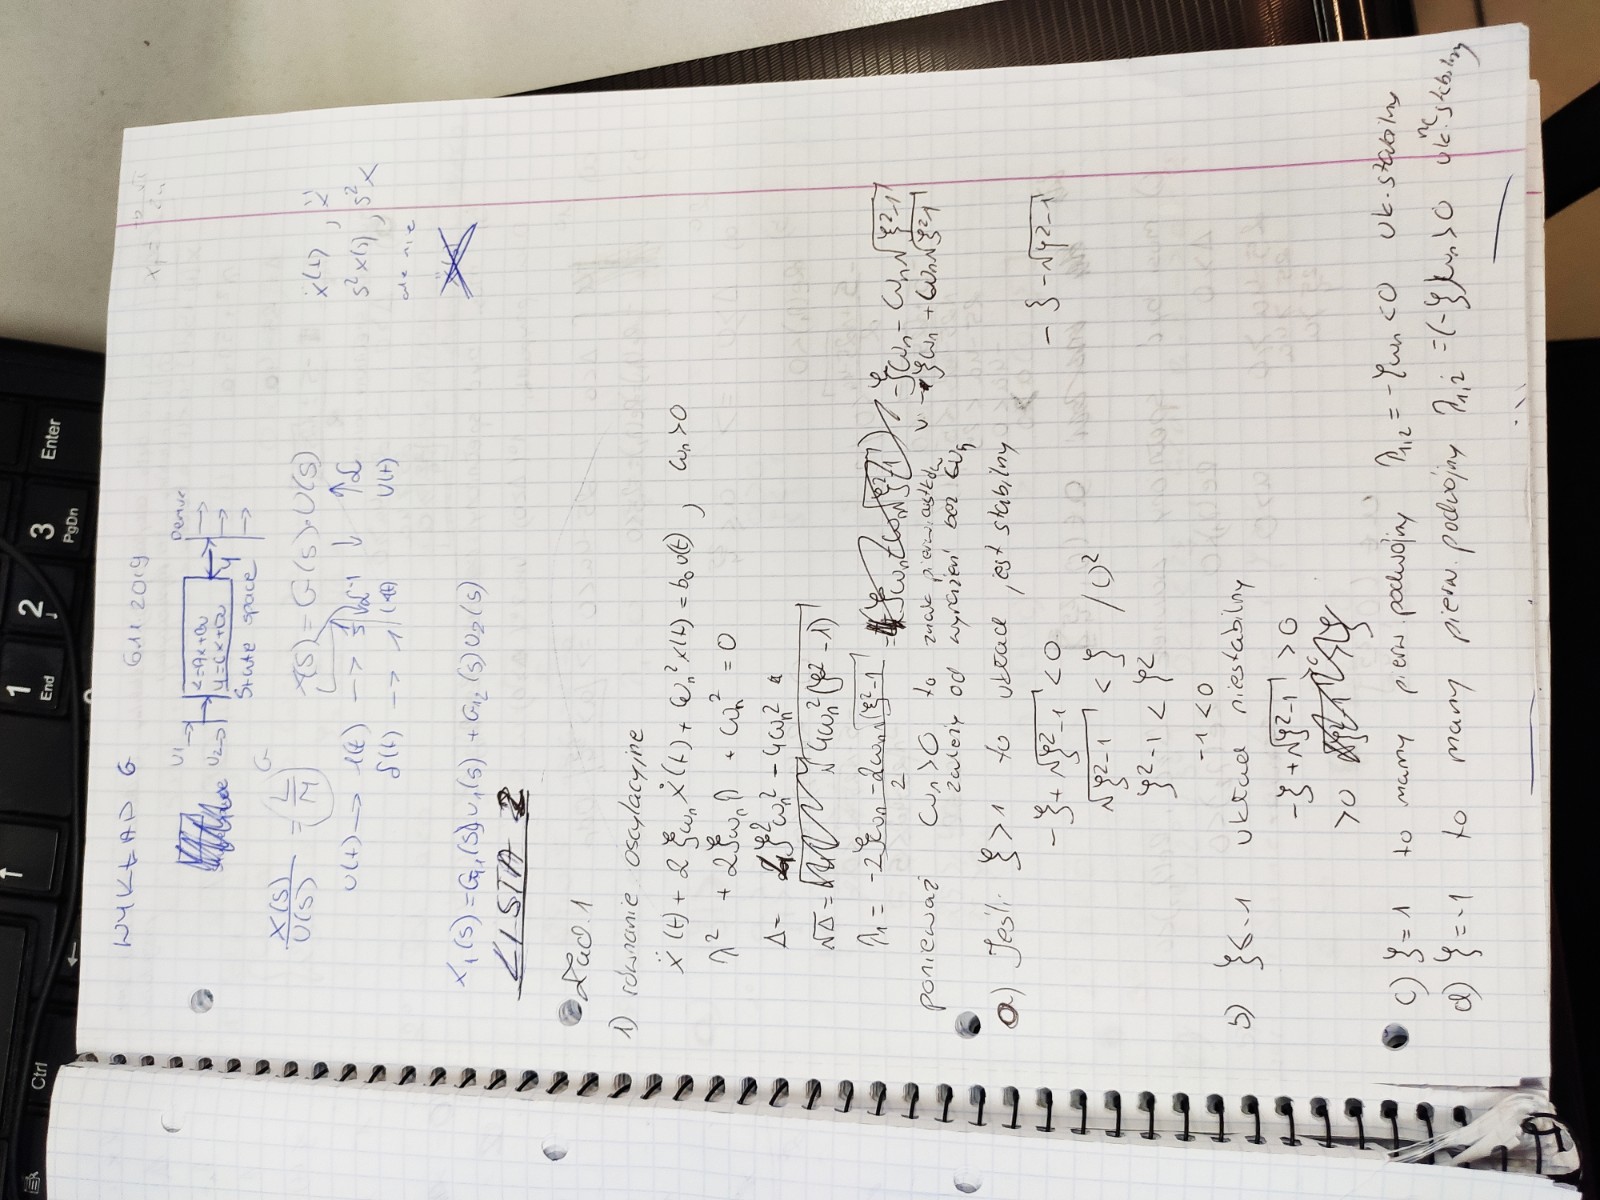 WYKŁAD 6 6.11.2019
U1 → U2 →
ẋ=Ax+Bu
y=Cx+Du
State space
y
X(s)/U(s) = (L/M) G
X(s) = G(s)·U(s)
u(t) → 1(t) → 1/s
δ(t) → 1
U(t)
ẋ(t), ẍ
s²X(s), s²X
ale nie
X₁(s) = G₁₁(s)U₁(s) + G₁₂(s)U₂(s)
LISTA 2
Zad. 1
1) równanie oscylacyjne
ẍ(t) + 2ξωₙẋ(t) + ωₙ²x(t) = b₀u(t), ωₙ>0
λ² + 2ξωₙλ + ωₙ² = 0
Δ = 4ξ²ωₙ² - 4ωₙ²
√Δ = √4ωₙ²(ξ²-1)
λ₁ = (-2ξωₙ - 2ωₙ√ξ²-1)/2 = -ξωₙ - ωₙ√ξ²-1
v -ξωₙ + ωₙ√ξ²-1
ponieważ ωₙ>0 to znak pierwiastków
zależy od wyrażeń bez ωₙ
a) Jeśli ξ>1 to układ jest stabilny
-ξ+√ξ²-1 <0 -ξ-√ξ²-1
√ξ²-1 < ξ /()²
ξ²-1 < ξ²
-1<0
b) ξ<-1 układ niestabilny
-ξ+√ξ²-1 >0
>0
c) ξ=1 to mamy pierw podwójny λ₁,₂ = -ξωₙ<0 uk. stabilny
d) ξ=-1 to mamy pierw. podwójny λ₁,₂ = (-ξ)ωₙ>0 uk. niestabilny
Enter
3
PgDn
2
↓
1
End
↑
Ctrl
←